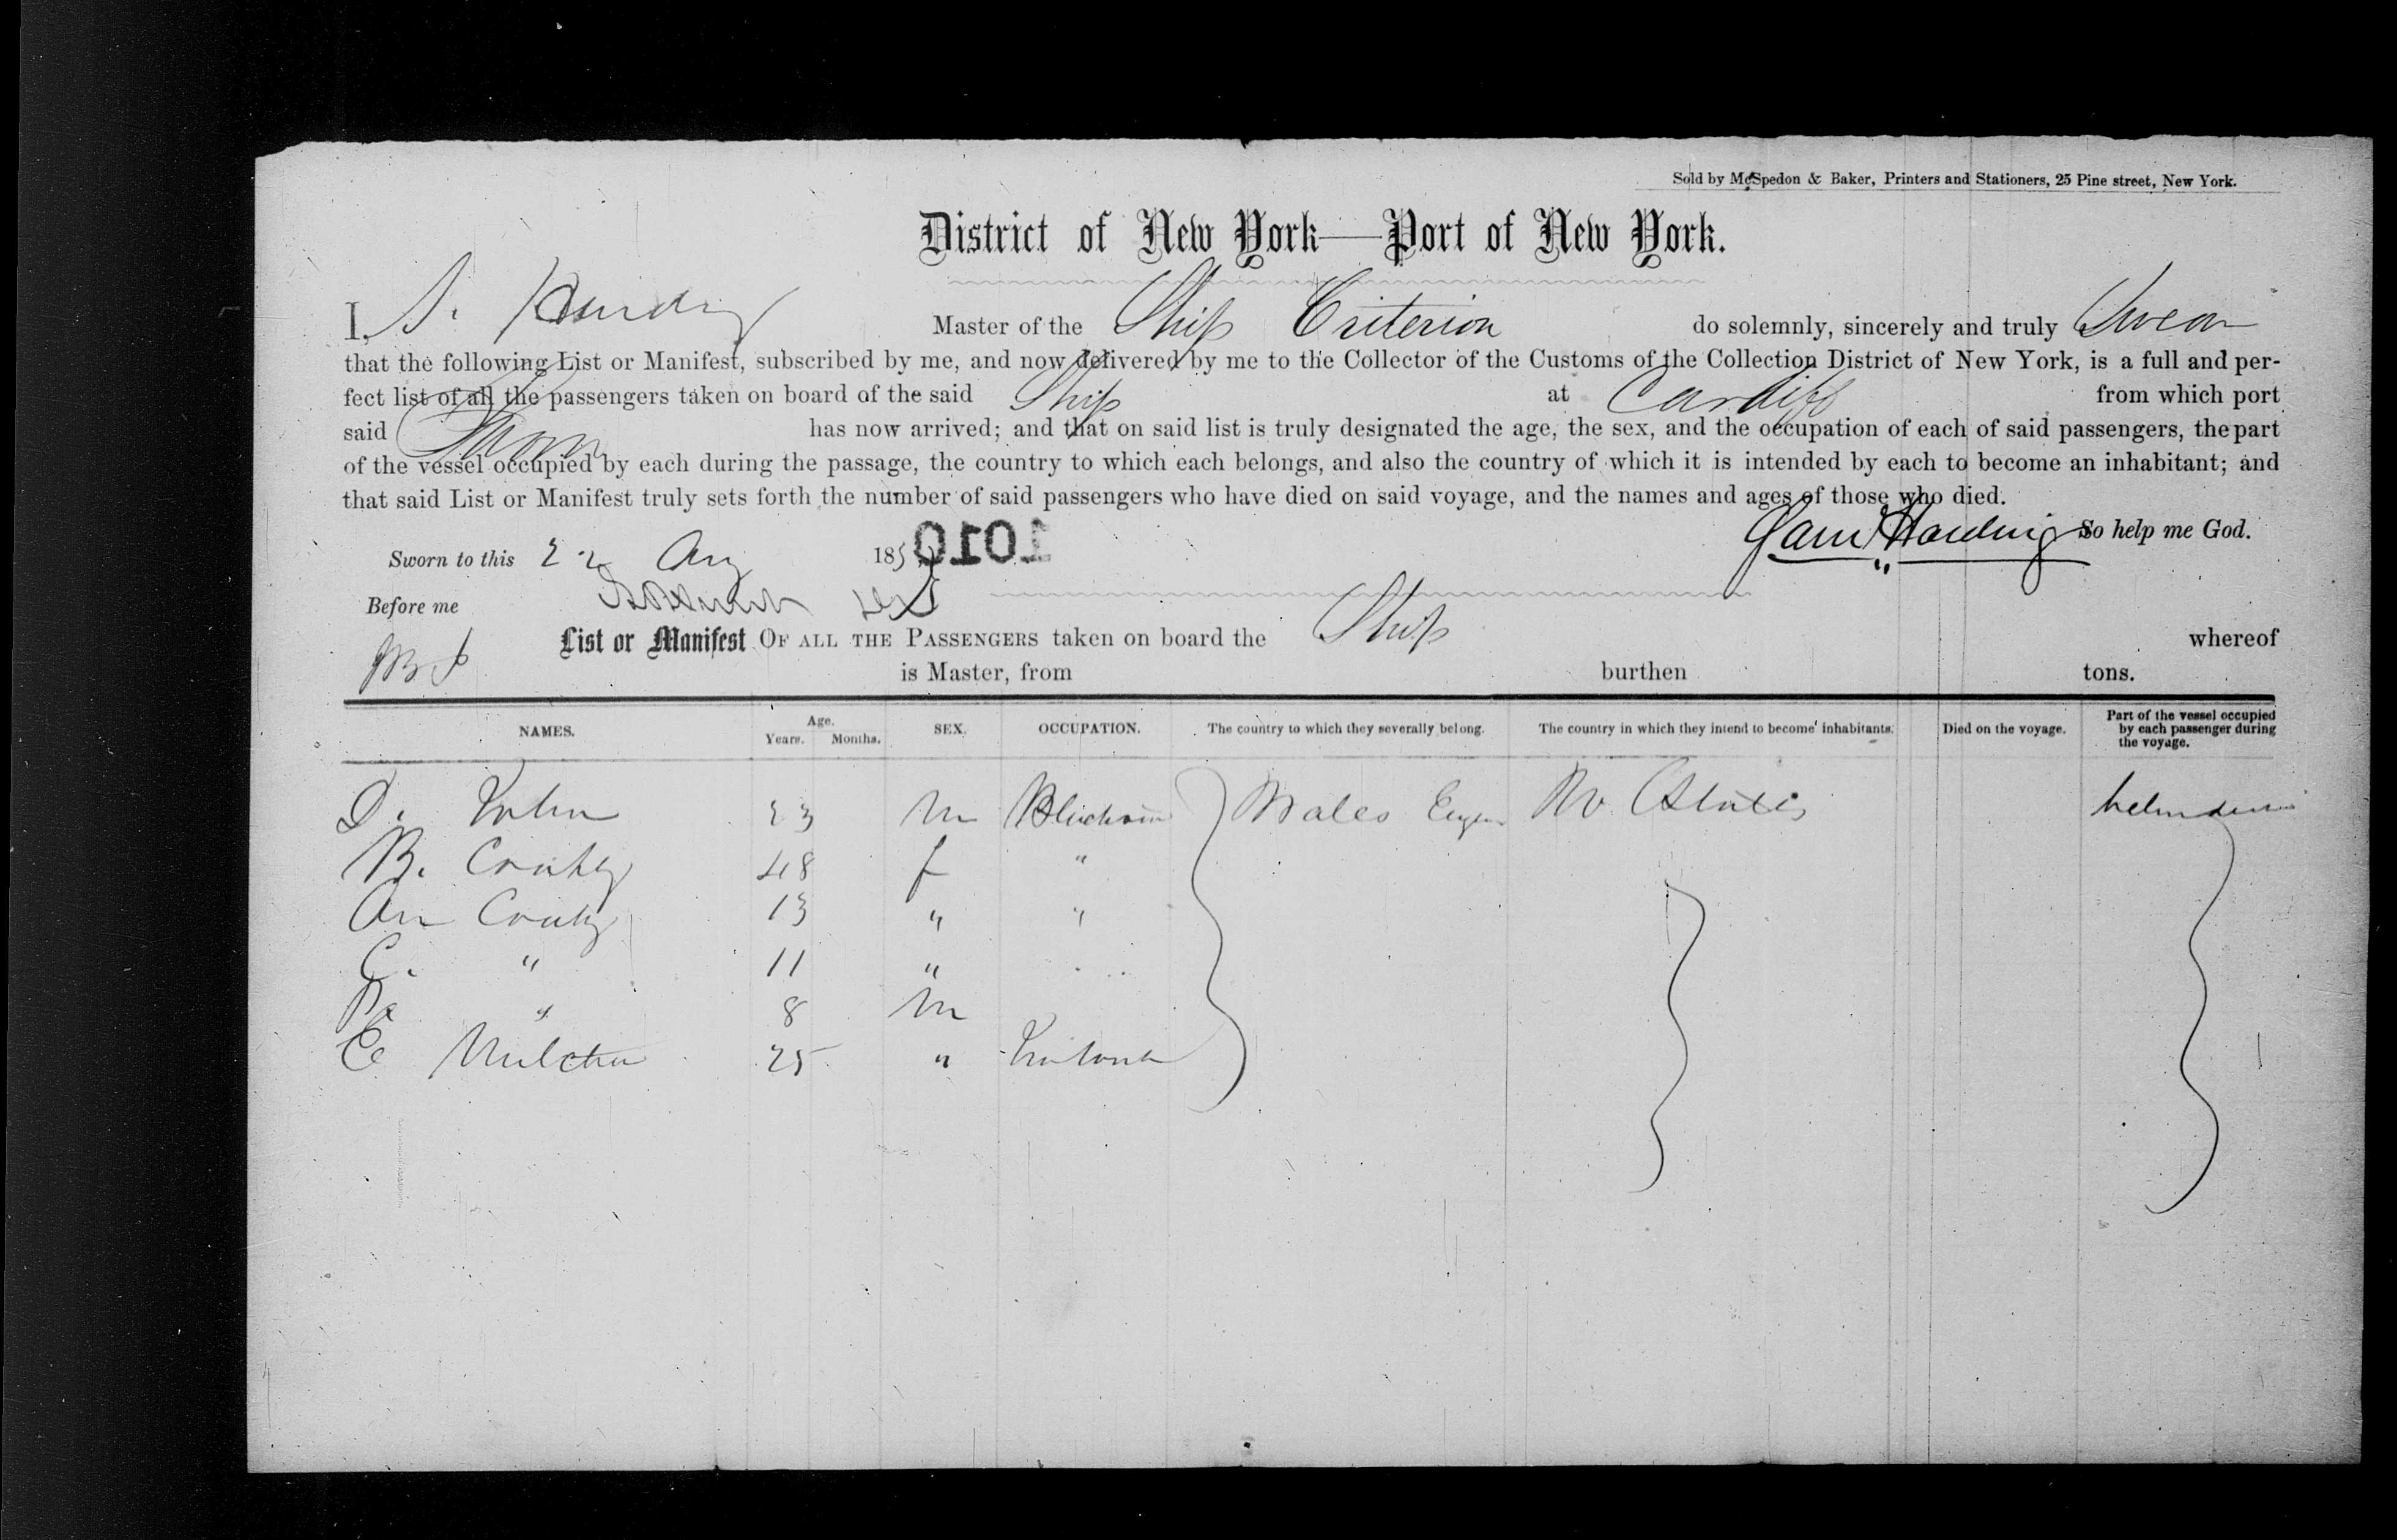 Sold by McSpedon & Baker, Printers and Stationers, 25 Pine street, New York.
District of New York—Port of New York.
I, S. Harding Master of the Ship Criterion do solemnly, sincerely and truly Swear
that the following List or Manifest, subscribed by me, and now delivered by me to the Collector of the Customs of the Collection District of New York, is a full and per-
fect list of all the passengers taken on board of the said Ship at Cardiff from which port
said has now arrived; and that on said list is truly designated the age, the sex, and the occupation of each of said passengers, the part
of the vessel occupied by each during the passage, the country to which each belongs, and also the country of which it is intended by each to become an inhabitant; and
that said List or Manifest truly sets forth the number of said passengers who have died on said voyage, and the names and ages of those who died.
Saml Harding So help me God.
Sworn to this 22 Aug 185 1010
Before me
List or Manifest OF ALL THE PASSENGERS taken on board the Ship whereof
is Master, from burthen tons.
NAMES. Age. Years. Months. SEX. OCCUPATION. The country to which they severally belong. The country in which they intend to become inhabitants. Died on the voyage. Part of the vessel occupied by each passenger during the voyage.
D. 23 M Wales States
B. 48 f "
Ann 13 " "
C. " 11 "
" 8 M
E 25 "